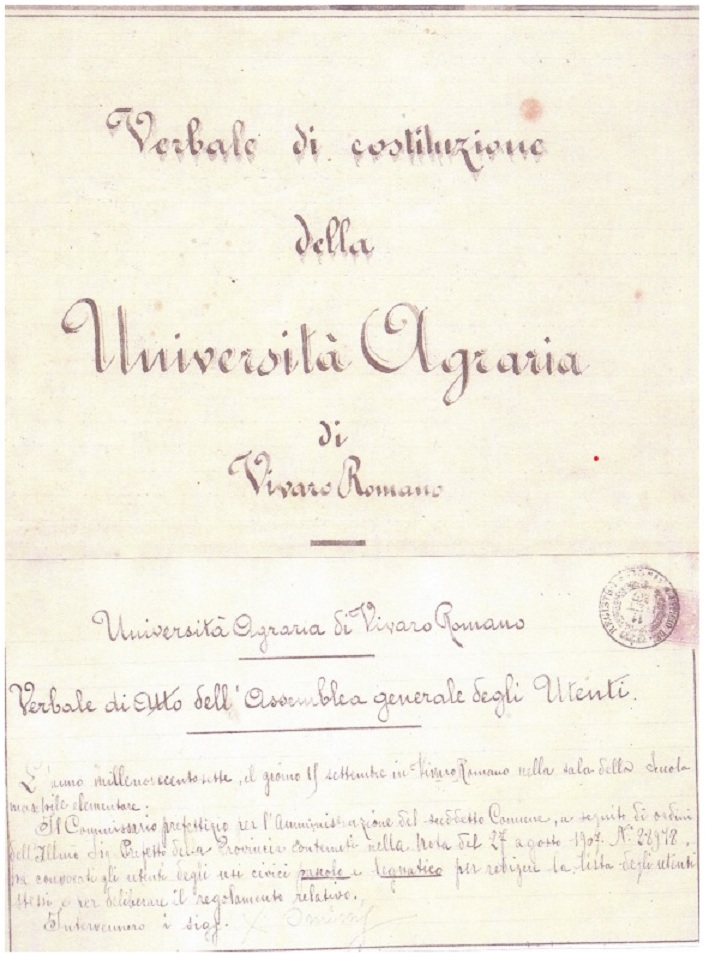 Verbale di costituzione
della
Università Agraria
di
Vivaro Romano
Università Agraria di Vivaro Romano
Verbale di Atto dell'Assemblea generale degli Utenti.
L'anno millenovecentosette, il giorno 15 settembre in Vivaro Romano nella sala della Scuola
maschile elementare.
Il Commissario prefettizio per l'Amministrazione del suddetto Comune, a seguito di ordini
dell'Ill.mo Sig. Prefetto della Provincia contenuti nella Nota del 27 agosto 1907 N.º 22978,
ha convocati gli utenti degli usi civici pascolo e legnatico per redigere la lista degli utenti
stessi e per deliberare il regolamento relativo.
Intervennero i sigg.